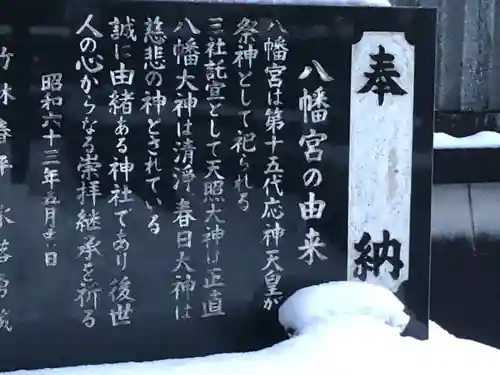 奉納
八幡宮の由来
八幡宮は第十五代応神天皇が
祭神として祀られる
三社託宣として天照大神は正直
八幡大神は清浄春日大神は
慈悲の神とされている
誠に由緒ある神社であり後世
人の心からなる崇拝継承を祈る
昭和六十三年五月 日
竹林春平